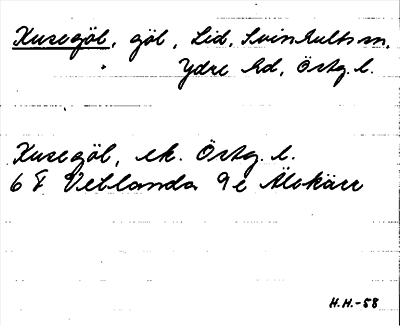 Xusegöl, göl, Lid, Svinhults sn,
Ydre hd, Östg. l.
Xusegöl, ek. Östg. l.
6 F Vetlanda 9e Älskärr
H.H.-58